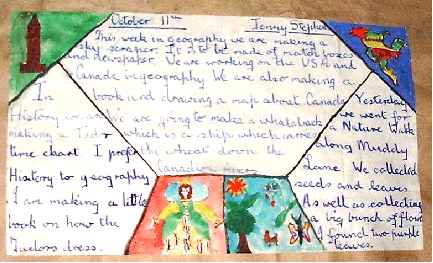 October 11th Jenny Stephen
This week in geography we are making a
sky scraper. It is to be made of match boxes
and newspaper. We are working on the USA and
Canada in geography. We are also making a
book and drawing a map about Canada
We are going to make a whaleback
which is a ship which carries
the wheat down the
Canadian
In
History we are
making a Tudor
time chart I prefer
History to geography
I am making a little
book on how the
Tudors dress.
Yesterday
we went for
a Nature Walk
along Muddy
Lane. We collected
seeds and leaves.
As well as collecting
a big bunch of flowers
I found two purple
leaves.